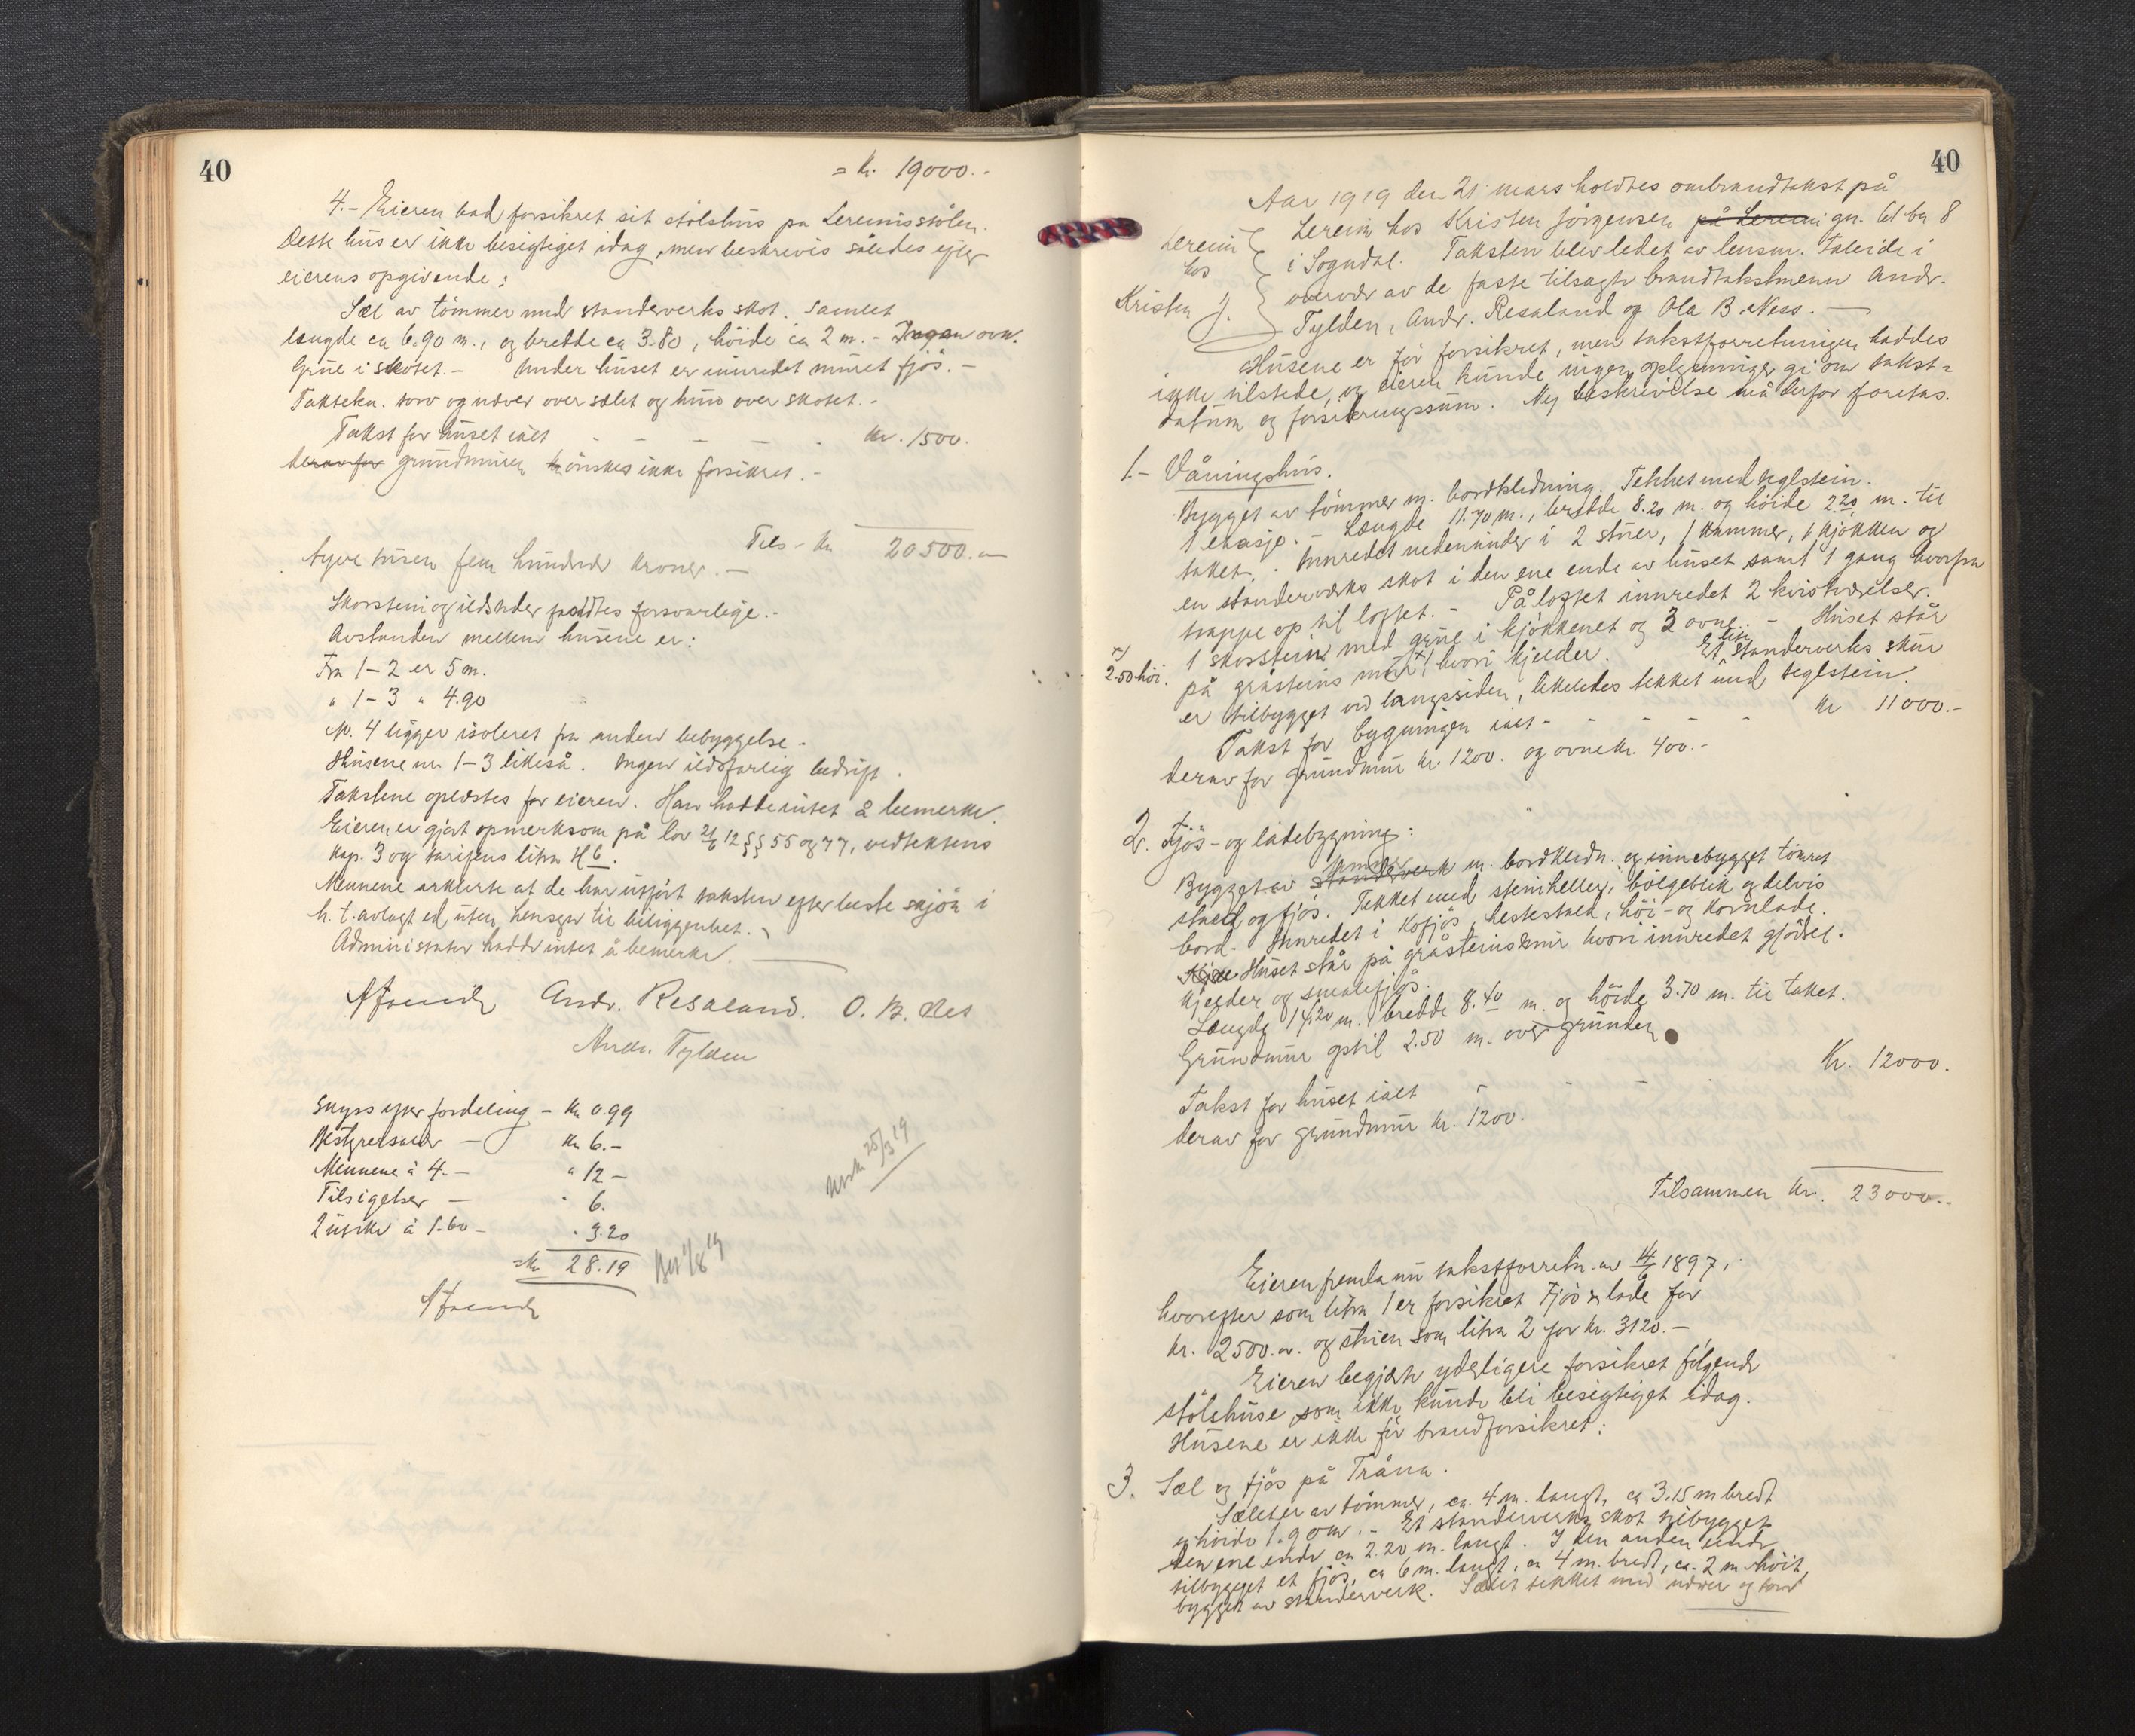 40
= Kr. 19000.-
4.- Eieren bad forsikret sit stølshus på Lereimsstølen.
Dette hus er ikke besigtiget idag, men beskrives således efter
eierens opgivende:
Sæl av tømmer med standerverks skot. Samlet
længde ca 6.90 m., og bredde ca 3.80, höide ca 2 m. - Ingen ovn.
Grue i skotet. - Under huset er innredet muret fjös. -
Taktekn. torv og næver over sælet og over skotet. -
Takst for huset ialt - - - - - Kr. 1500.
derav for grundmuren ønskes ikke forsikret. -
Tils - Kr 20500.-
tyve tusen fem hundrede kroner. -
Skorstein og ildsteder fandtes forsvarlige. -
Avstanden mellem husene er:
Fra 1-2 er 5 m.
" 1-3 " 4.90
Nr. 4 ligger isoleret fra anden bebyggelse -
Husene nr 1-3 likeså. Ingen ildsfarlig bedrift.
Takstene oplæstes for eieren. Han hadde intet å bemerke.
Eieren er gjort opmerksom på lov 21/6 12 §§ 55 og 77, vedtektens
kap. 3 og tarifens litra H 6.
Mennene erklærte at de har utført taksten efter beste skjön i
h. t. avlagt ed uten hensyn til beliggenhet.
Administrator hadde intet å bemerke.
Andr. Resaland. O. B. Nes
Andr. Tylden
Skyss efter fordeling - Kr 0.99
Bestyrelsen - Kr 6.-
Mennene à 4.- " 12 -
Tilsigelser - " 6.
2 utskr à 1.60 - " 3.20
= Kr 28.19
Utsk 25/3 19
40
Aar 1919 den 21 mars holdtes ombrandtakst på
Lereim hos Kristen Jörgensen på Lereim gn. 61 bn 8
i Sogndal. Taksten blev ledet av lensm. Taleide i
overvær av de faste tilsagte brandtakstmenn Andr.
Tylden, Andr. Resaland og Ola B. Ness. -
Lereim
hos
Kristen J.
Husene er før forsikret, men takstforretningen haddes
ikke tilstede, og eieren kunde ingen oplysninger gi om takst-
datum og forsikringssum. Ny beskrivelse må derfor foretas.
1.- Våningshus.
Bygget av tømmer m. bordklædning. Tekket med teglstein.
1 etasje. - Længde 11.70 m., bredde 8.20 m. og höide 2.20 m. til
taket. - Innredet nedenunder i 2 stuer, 1 kammer, 1 kjøkken og
en standerverks skot i den ene ende av huset samt 1 gang hvorfra
trappe op til loftet. - På loftet innredet 2 kvistværelser.
1 skorstein med grue i kjøkkenet og 3 ovne. - Huset står
x) 2.50 höi.
på gråsteins mur x) hvori kjelder. Et lite standerverks skur
er tilbygget ved langsiden, likeledes tekket med teglstein.
Takst for bygningen ialt - - - - - Kr 11000.-
derav for grundmur kr. 1200. og ovne kr. 400.-
2. Fjös- og ladebygning:
Bygget av standerverk m. bordkledn. og innebygget tömret
stald og fjös. Tekket med steinheller, bölgeblik og delvis
bord. Innredet i kofjös, hestestald, höi- og kornlade.
Huset står på gråsteinsmur hvori innredet gjödsel-
kjelder og smalefjös.
Længde 14.20 m. bredde 8.40 m. og höide 3.70 m. til taket.
Grundmur optil 2.50 m. over grunden
Takst for huset ialt - - - Kr. 12000.
derav for grundmur kr. 1200.
Tilsammen Kr. 23000.-
Eieren fremla nu takstforretn. av 14/6 1897,
hvorefter som litra 1 er forsikret Fjös & lade for
kr. 2500.- og stuen som litra 2 for kr. 3120.-
Eieren begjærte yderligere forsikret følgende
stølshuse som ikke kunde bli besigtiget idag.
Husene er ikke før brandforsikret:
3. Sæl og fjös på Tråna.
Sælet er av tømmer, ca. 4 m. langt, ca 3.15 m bredt
og höide 1.90 m. - Et standerverks skot tilbygget
den ene ende ca 2.20 m. langt. I den anden ende
tilbygget et fjös, ca 6 m. langt, ca 4 m. bredt, ca. 2 m höit,
bygget av standerverk. Sælet tekket med næver og torv